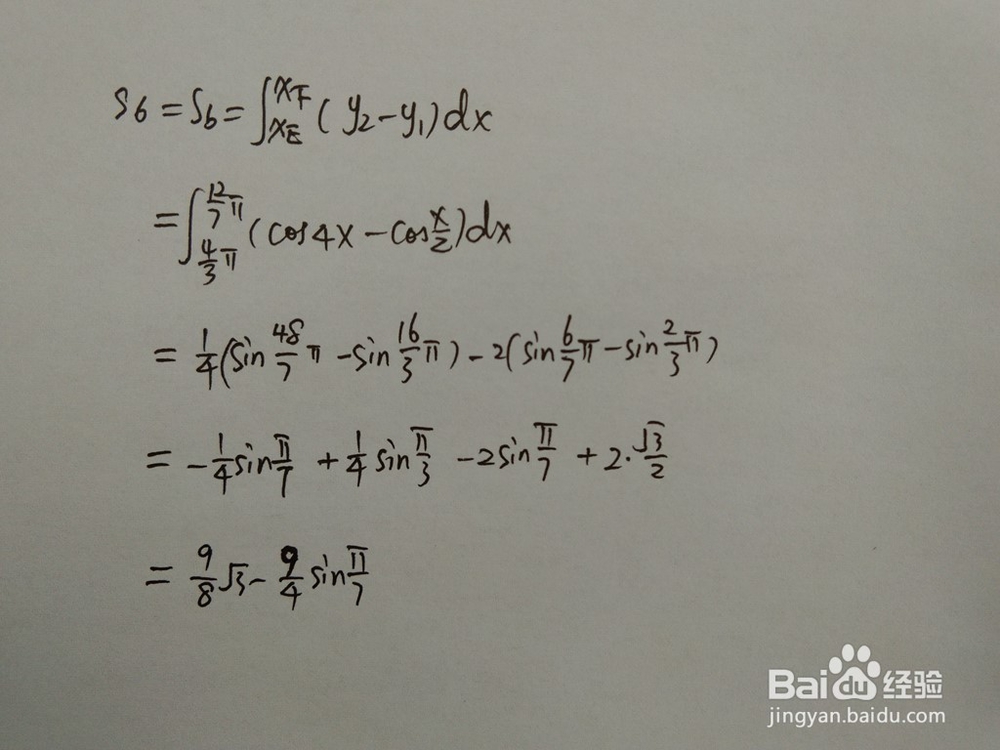 S6 = S6 = ∫_{x_E}^{x_F} (y₂ - y₁) dx
= ∫_{4/3 π}^{12/7 π} (cos4x - cos x/2) dx
= 1/4 (sin 48/7 π - sin 16/3 π) - 2 (sin 6/7 π - sin 2/3 π)
= - 1/4 sin π/7 + 1/4 sin π/3 - 2 sin π/7 + 2 · √3/2
= 9/8 √3 - 9/4 sin π/7
Baidu 经验
jingyan.baidu.com